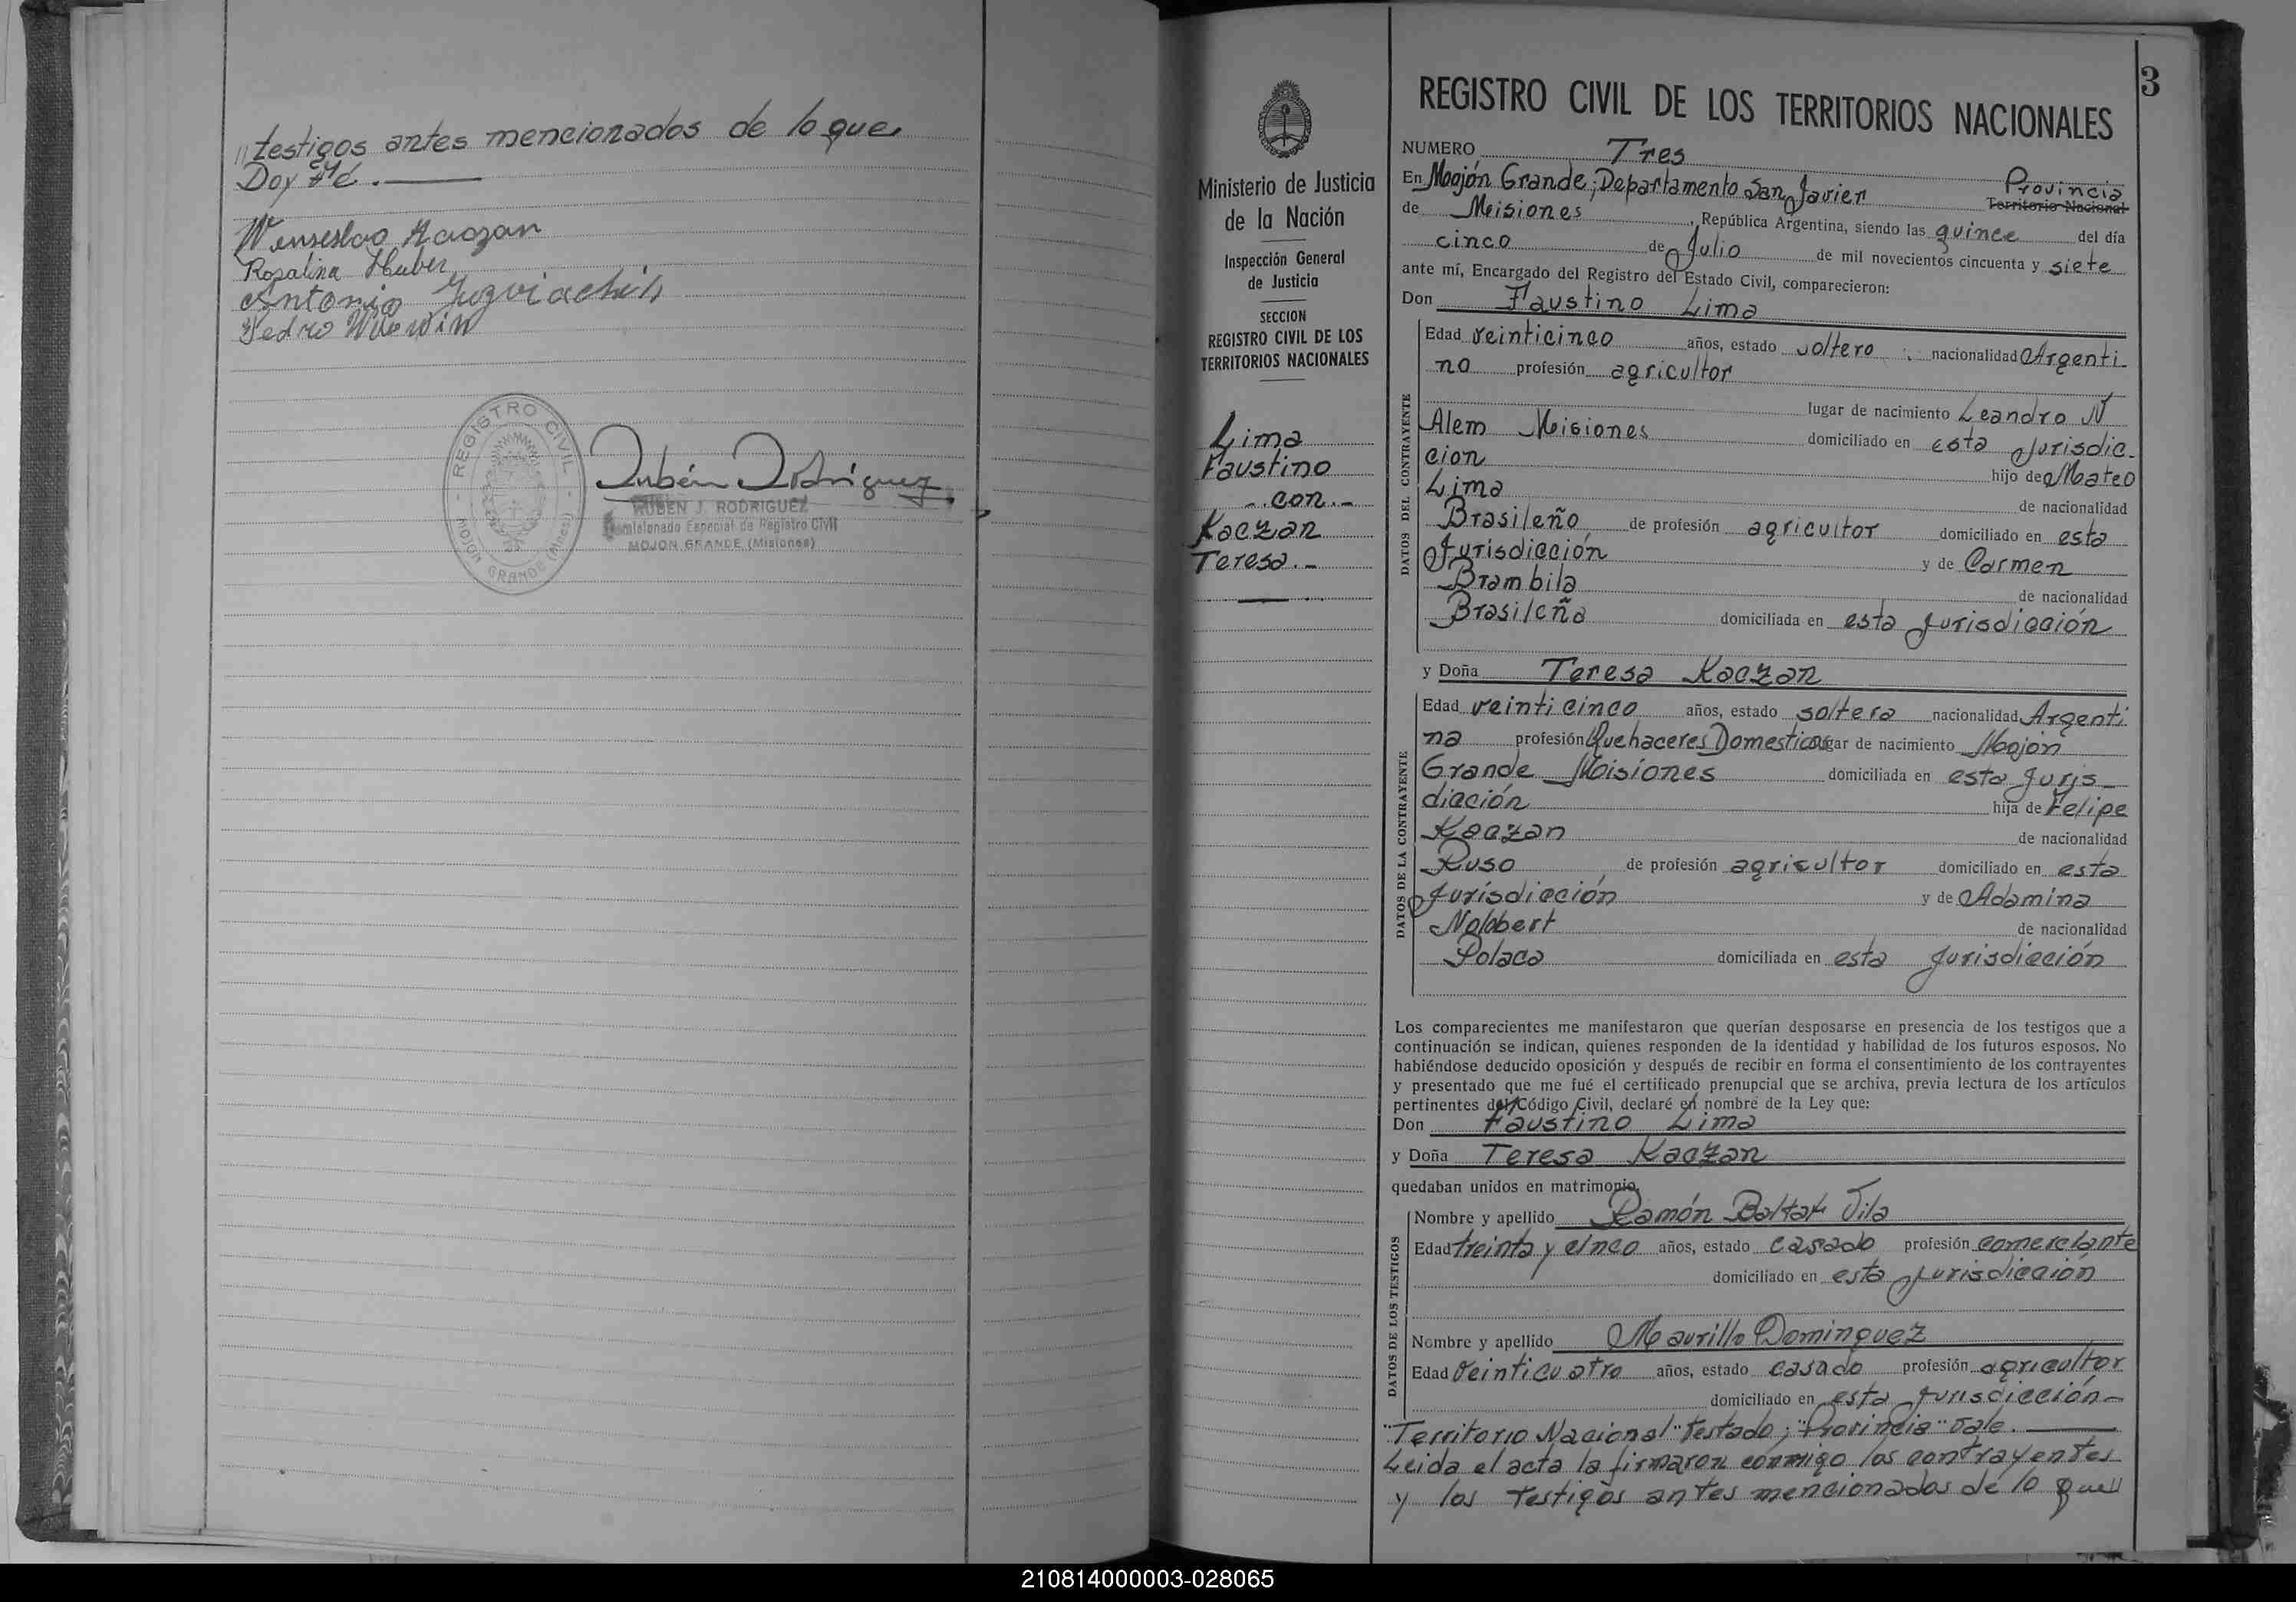 " testigos antes mencionados de lo que
Doy Fé.
Wenseslao Kaczan
Rosalina Huber
Antonio
Pedro
REGISTRO CIVIL
MOJON GRANDE (Mnes)
Rubén Rodríguez
RUBEN J. RODRIGUEZ
Comisionado Especial de Registro Civil
MOJON GRANDE (Misiones)
Ministerio de Justicia
de la Nación
Inspección General
de Justicia
SECCION
REGISTRO CIVIL DE LOS
TERRITORIOS NACIONALES
Lima
Faustino
-.con.-
Kaczan
Teresa.-
3
REGISTRO CIVIL DE LOS TERRITORIOS NACIONALES
NUMERO Tres
En Mojón Grande; Departamento San Javier Provincia
Territorio Nacional
de Misiones, República Argentina, siendo las quince del día
cinco de Julio de mil novecientos cincuenta y siete
ante mí, Encargado del Registro del Estado Civil, comparecieron:
Don Faustino Lima
DATOS DEL CONTRAYENTE
Edad veinticinco años, estado soltero nacionalidad Argenti-
no profesión agricultor
lugar de nacimiento Leandro N
Alem Misiones domiciliado en esta Jurisdic-
cion hijo de Mateo
Lima de nacionalidad
Brasileño de profesión agricultor domiciliado en esta
Jurisdicción y de Carmen
Brambila de nacionalidad
Brasileña domiciliada en esta Jurisdicción
y Doña Teresa Kaczan
DATOS DE LA CONTRAYENTE
Edad veinticinco años, estado soltera nacionalidad Argenti
na profesión Quehaceres Domesticos lugar de nacimiento Mojón
Grande Misiones domiciliada en esta Juris-
dicción hija de Felipe
Kaczan de nacionalidad
Ruso de profesión agricultor domiciliado en esta
Jurisdicción y de Adamina
Nolobert de nacionalidad
Polaca domiciliada en esta Jurisdicción
Los comparecientes me manifestaron que querían desposarse en presencia de los testigos que a
continuación se indican, quienes responden de la identidad y habilidad de los futuros esposos. No
habiéndose deducido oposición y después de recibir en forma el consentimiento de los contrayentes
y presentado que me fué el certificado prenupcial que se archiva, previa lectura de los artículos
pertinentes del Código Civil, declaré en nombre de la Ley que:
Don Faustino Lima
y Doña Teresa Kaczan
quedaban unidos en matrimonio.
DATOS DE LOS TESTIGOS
Nombre y apellido Ramón Baltar Vila
Edad treinta y cinco años, estado casado profesión comerciante
domiciliado en esta Jurisdicción
Nombre y apellido Maurillo Dominguez
Edad veinticuatro años, estado casado profesión agricultor
domiciliado en esta Jurisdicción-
"Territorio Nacional" testado; "Provincia" vale.
Leida el acta la firmaron conmigo los contrayentes
y los testigos antes mencionados de lo que"
210814000003-028065